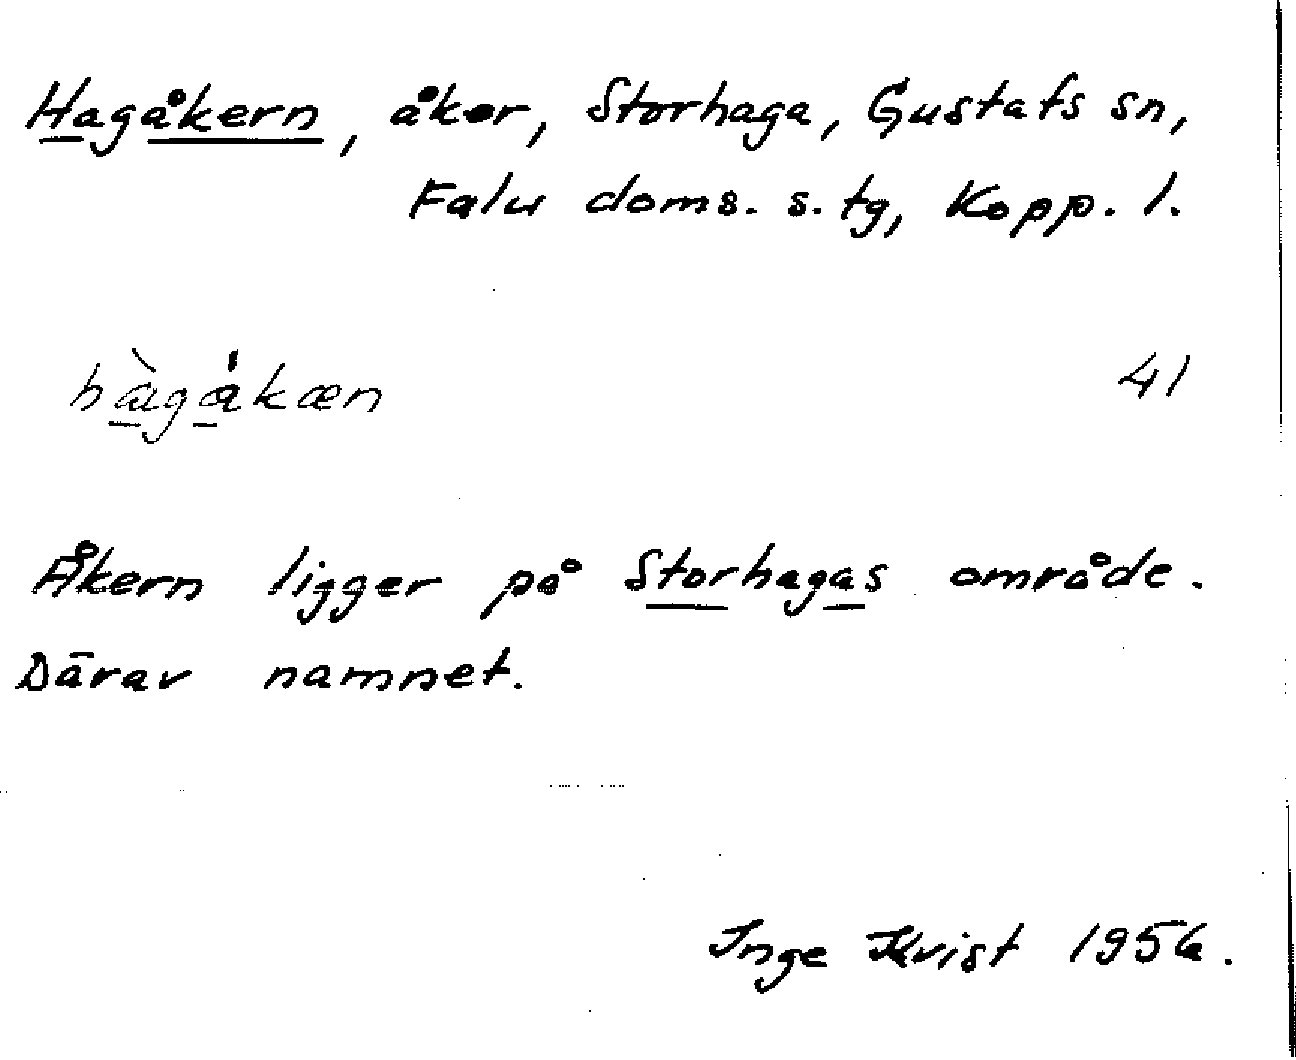 Hagåkern, åker, Storhaga, Gustafs sn,
Falu doms. s. tg, Kopp. l.
hàgåkæn 41
Åkern ligger på Storhagas område.
Därav namnet.
Inge Kvist 1956.